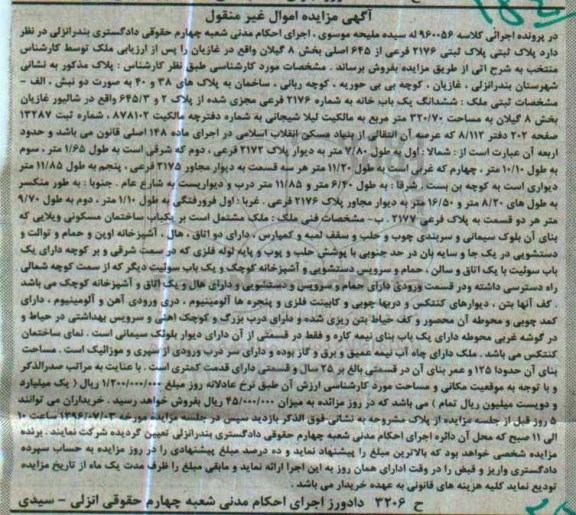 آگهی مزایده اموال غیر منقول
در پرونده اجرائی کلاسه ۹۶۰۰۵۶ له سیده ملیحه موسوی . اجرای احکام مدنی شعبه چهارم حقوقی دادگستری بندرانزلی در نظر
دارد پلاک ثبتی پلاک ثبتی ۲۱۷۶ فرعی از ۶۴۵ اصلی بخش ۸ گیلان واقع در غازیان را پس از ارزیابی ملک توسط کارشناس
منتخب به شرح اتی از طریق مزایده بفروش برساند . مشخصات مورد کارشناسی طبق نظر کارشناس : پلاک مذکور به نشانی
شهرستان بندرانزلی . غازیان . کوچه بی بی حوریه . کوچه ربانی . ساختمان به پلاک های ۳۸ و ۴۰ به صورت دو نبش . الف -
مشخصات ثبتی ملک : ششدانگ یک باب خانه به شماره ۲۱۷۶ فرعی مجزی شده از پلاک ۲ و ۶۴۵/۳ واقع در شالیور غازیان
بخش ۸ گیلان به مساحت ۳۲۰/۷۰ متر مربع به مالکیت لیلا شیجانی به شماره دفترچه مالکیت ۸۷۸۱۰۲ . شماره ثبت ۱۳۲۸۷
صفحه ۲۰۲ دفتر ۸/۱۱۲ که عرصه آن انتقالی از بنیاد مسکن انقلاب اسلامی در اجرای ماده ۱۴۸ اصلی قانون می باشد و حدود
اربعه آن عبارت است از : شمالا : اول به طول ۷/۸۰ متر به دیوار پلاک ۲۱۷۲ فرعی . دوم که شرقی است به طول ۱/۶۵ متر . سوم
به طول ۱۰/۱۰ متر . چهارم که غربی است به طول ۱۱/۳۰ متر هر سه قسمت به دیوار مجاور ۲۱۷۵ فرعی . پنجم به طول ۱۱/۸۵ متر
دیواری است به کوچه بن بست . شرقا : به طول ۶/۴۰ متر و ۱۱/۸۵ متر درب و دیواریست به شارع عام . جنوبا : به طور منکسر
به طول های ۸/۲۰ متر و ۱۶/۵۰ متر به دیوار مجاور پلاک ۲۱۷۶ فرعی . غربا : اول فرورفتگی به طول ۱/۱۰ متر . دوم به طول ۹/۷۰
متر هر دو قسمت به پلاک فرعی ۲۱۷۷ . ب- مشخصات فنی ملک : ملک مشتمل است بر یکباب ساختمان مسکونی ویلایی که
بنای آن بلوک سیمانی و سربندی چوب و حلب و سقف لمبه و کمپارس . دارای دو اتاق . هال . آشپزخانه اوپن و حمام و توالت و
دستشویی در یک جا و سایه بان در حد جنوبی با پوشش حلب و پوب و پایه لوله فلزی که در سمت شرقی و بر کوچه دارای یک
باب سوئیت با یک اتاق و سالن . حمام و سرویس دستشویی و آشپزخانه کوچک و یک باب سوئیت دیگر که از سمت کوچه شمالی
راه دسترسی داشته ودر قسمت ورودی دارای حمام و سرویس و دستشویی و دارای هال و یک اتاق و آشپزخانه کوچک می باشد
. کف آنها بتن . دیوارهای کنتکس و دربها چوبی و کابینت فلزی و پنجره ها آلومینیوم . دری ورودی آهن و آلومینیوم . دارای
کمد چوبی و محوطه آن محصور و کف حیاط بتن ریزی شده و دارای درب بزرگ و کوچک اهنی و سرویس بهداشتی در حیاط و
در گوشه غربی محوطه دارای یک باب بنای نیمه کاره و فقط در قسمتی از آن دارای دیوار بلوک سیمانی است . نمای ساختمان
کنتکس می باشد . ملک دارای چاه آب نیمه عمیق و برق و گاز بوده و دارای سر درب ورودی از سپری و موزائیک است . مساحت
بنای آن حدودا ۱۲۵ و عمر بنای آن در قسمتی بالغ بر ۲۵ سال و قسمتی دارای قدمت کمتری است . با عنایت به مراتب صدرالذکر
و با توجه به موقعیت مکانی و مساحت مورد کارشناسی ارزش آن طبق نرخ عادلانه روز مبلغ ۱/۲۰۰/۰۰۰/۰۰۰ ریال ( یک میلیارد
و دویست میلیون ریال تمام ) می باشد که در روز مزائده به میزان ۴۵/۰۰۰/۰۰۰ ریال بفروش خواهد رسید . خریداران می توانند
۵ روز قبل از جلسه مزایده از پلاک مشروحه به نشانی فوق الذکر بازدید سپس در جلسه مزایده مورخه ۱۳۹۶/۰۷/۰۳ ساعت ۱۰
الی ۱۱ صبح که محل آن دائره اجرای احکام مدنی شعبه چهارم حقوقی دادگستری بندرانزلی تعیین گردیده شرکت نمایند . برنده
مزایده شخصی خواهد بود که بالاترین مبلغ را پیشنهاد نماید و ده درصد مبلغ پیشنهادی را در روز مزایده به حساب سپرده
دادگستری واریز و قبض را در وقت اداری همان روز به این اجرا ارائه نماید و مابقی مبلغ را ظرف مدت یک ماه از تاریخ مزایده
تودیع نماید کلیه هزینه های قانونی به عهده خریدار می باشد .
ح ۳۲۰۶ دادورز اجرای احکام مدنی شعبه چهارم حقوقی انزلی - سیدی